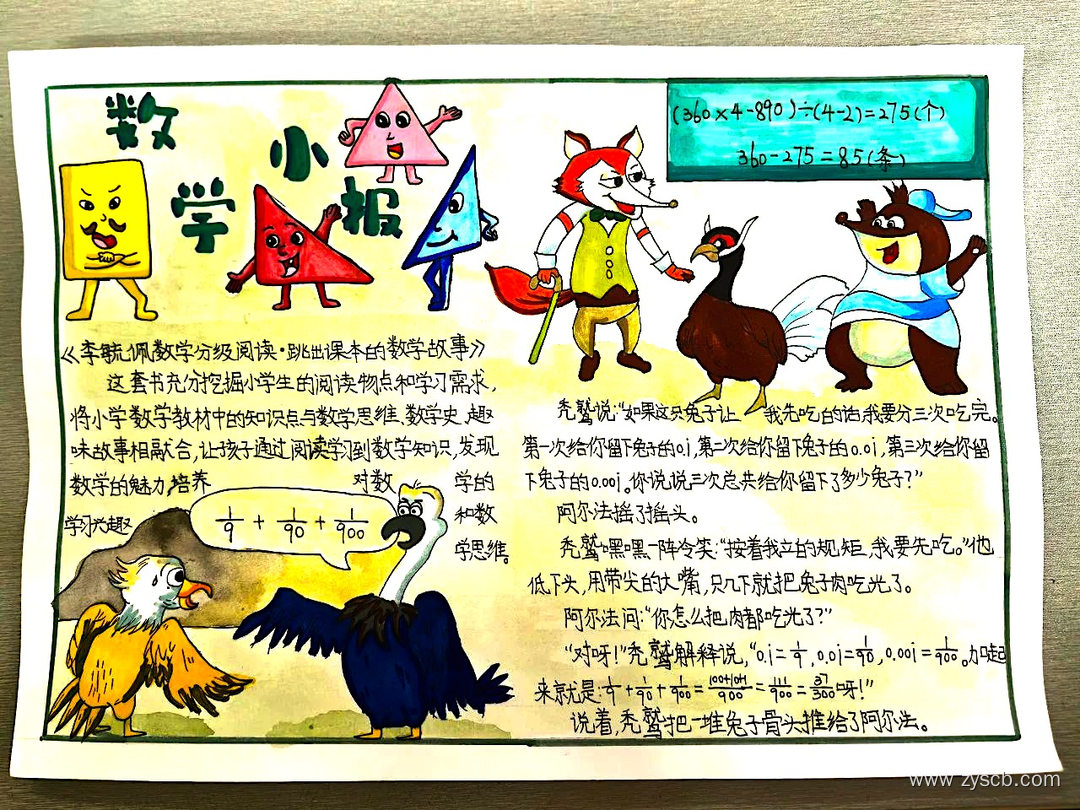 数
学
小
报
(360×4-890)÷(4-2)=275(个)
360-275=85(条)
《李毓佩数学分级阅读·跳出课本的数学故事》
这套书充分挖掘小学生的阅读物点和学习需求,
将小学数学教材中的知识点与数学思维、数学史、趣
味故事相融合,让孩子通过阅读学习到数学知识,发现
数学的魅力,培养 对数 学的
学习兴趣 和数
学思维。
1/9 + 1/90 + 1/900
秃鹫说:“如果这只兔子让 我先吃的话,我要分三次吃完。
第一次给你留下兔子的0.i,第二次给你留下兔子的0.0i,第三次给你留
下兔子的0.00i。你说说三次总共给你留下了多少兔子?”
阿尔法摇了摇头。
秃鹫嘿嘿一阵冷笑:“按着我立的规矩,我要先吃。”他
低下头,用带尖的大嘴,只几下就把兔子肉吃光了。
阿尔法问:“你怎么把肉都吃光了?”
“对呀!”秃鹫解释说,“0.i=1/9,0.0i=1/90,0.00i=1/900。加起
来就是:1/9+1/90+1/900=100+10+1/900=111/900=37/300呀!”
说着,秃鹫把一堆兔子骨头推给了阿尔法。
www.zyscb.com